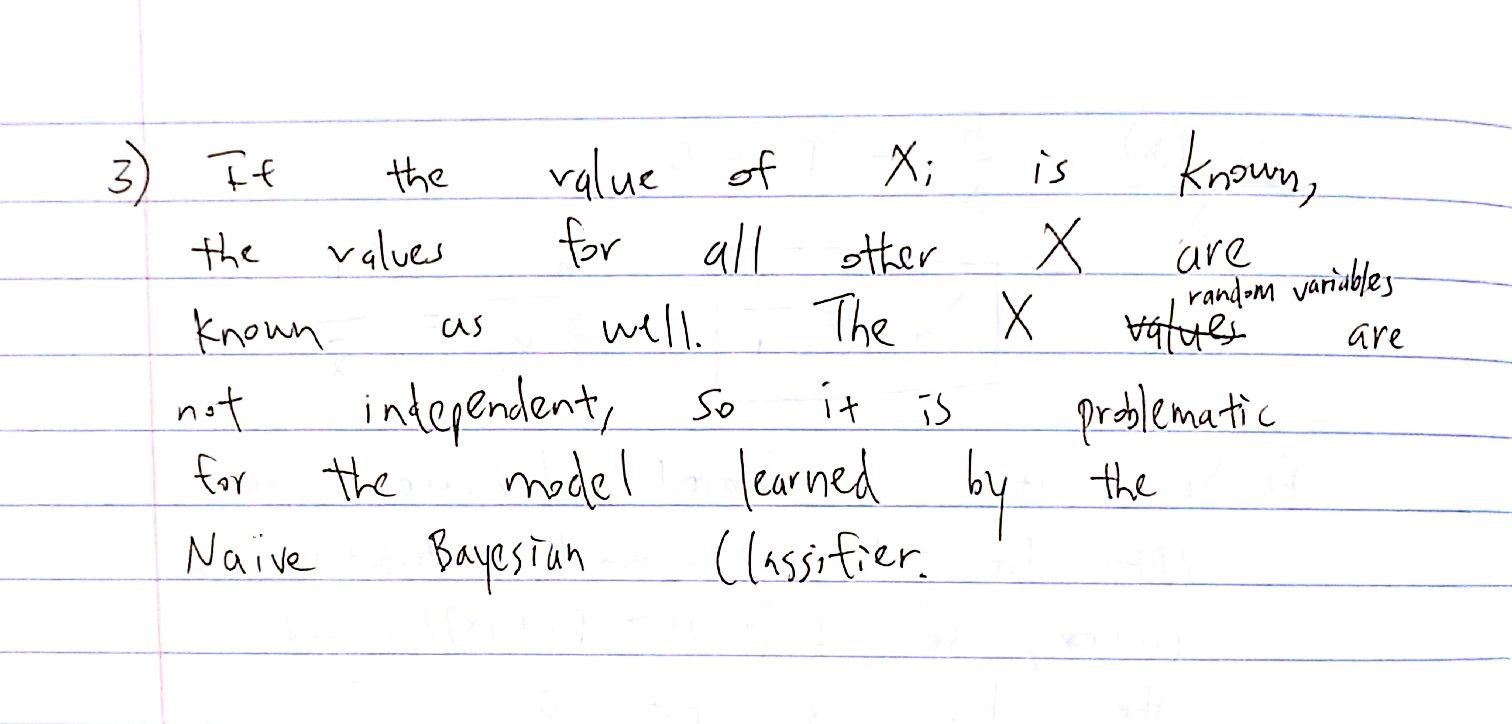 3) If the value of Xi is known,
the values for all other X are
random variables
known as well. The X values are
not independent, so it is problematic
for the model learned by the
Naive Bayesian Classifier.